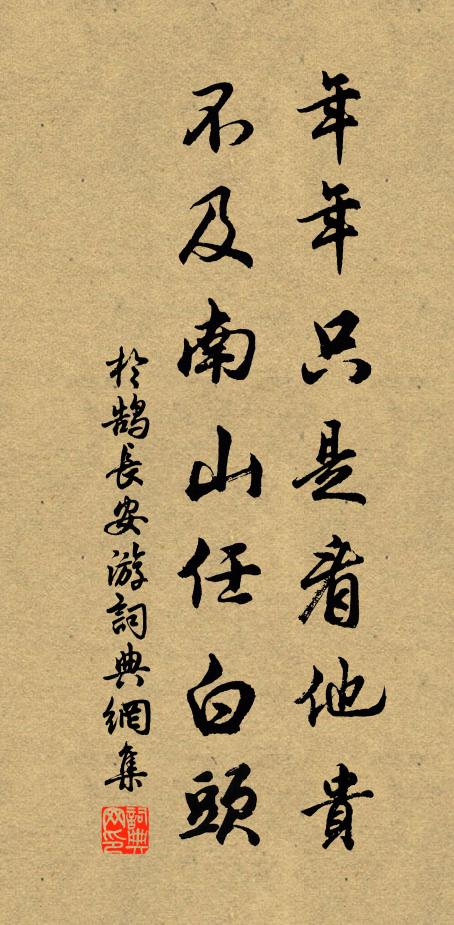 年年只是看他貴
不及南山任白頭
於鵠長安游詞典網集
詞典網印